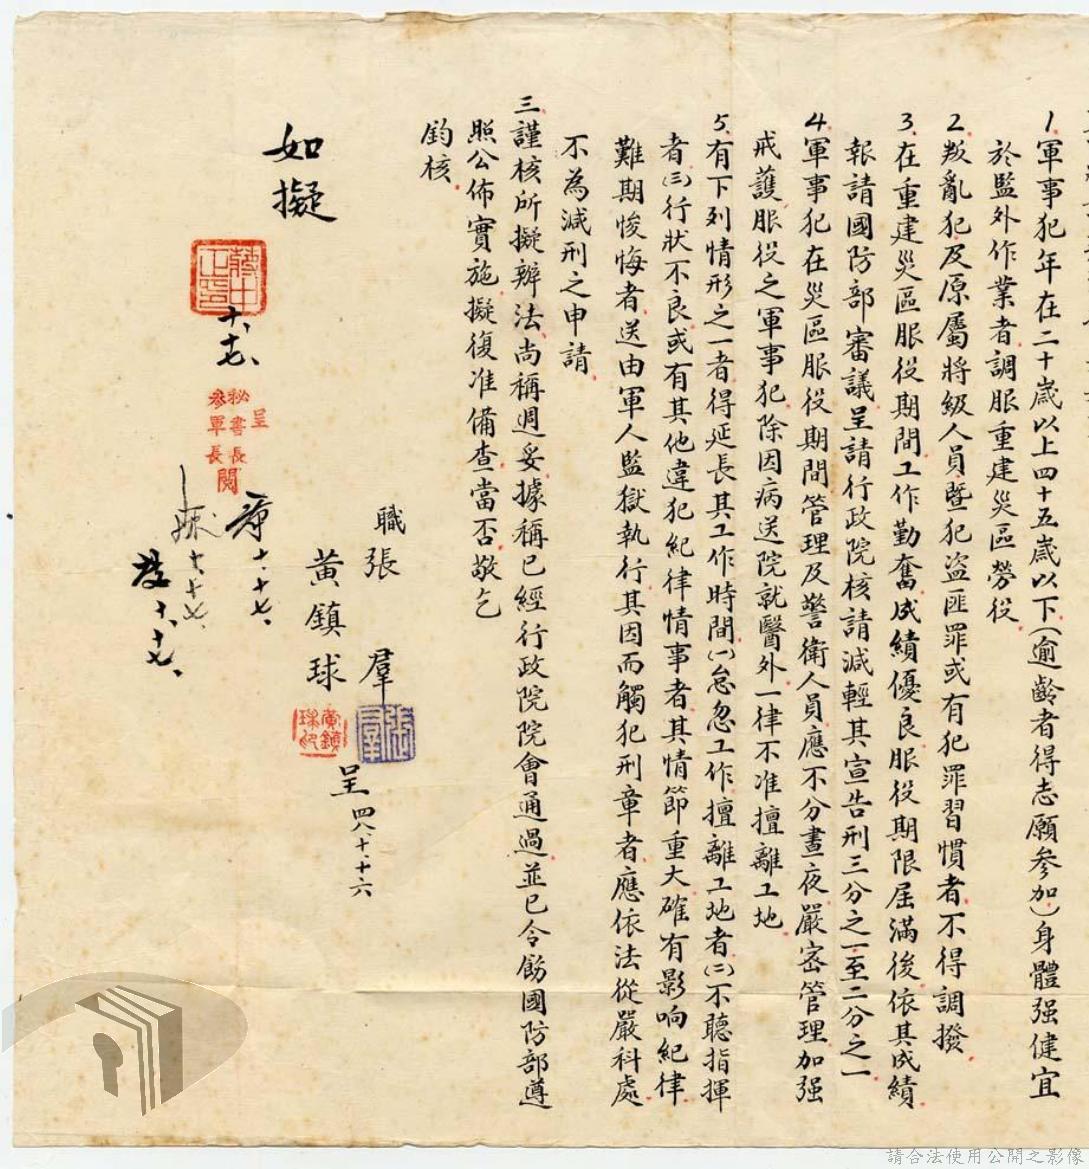 1.軍事犯年在二十歲以上四十五歲以下(逾齡者得志願參加)身體强健宜
於監外作業者調服重建災區勞役.
2.叛亂犯及原屬將級人員暨犯盜匪罪或有犯罪習慣者不得調撥.
3.在重建災區服役期間工作勤奮成績優良服役期限屆滿後依其成績
報請國防部審議呈請行政院核請減輕其宣告刑三分之一至二分之一.
4.軍事犯在災區服役期間管理及警衛人員應不分晝夜嚴密管理加强
戒護服役之軍事犯除因病送院就醫外一律不准擅離工地.
5.有下列情形之一者得延長其工作時間㈠怠忽工作擅離工地者㈡不聽指揮
者㈢行狀不良或有其他違犯紀律情事者其情節重大確有影响紀律
難期悛悔者送由軍人監獄執行其因而觸犯刑章者應依法從嚴科處
不為減刑之申請.
三.謹核所擬辦法尚稱週妥據稱已經行政院院會通過並已令飭國防部遵
照公佈實施擬復准備查當否敬乞
鈞核.
職張 羣
黃鎮球
張羣
黃鎮球印
呈 四八.十.十六
如擬
蔣中正印
十.十七.
呈
秘書長
參軍長
閱
十.十七.
十.十七.
十.十七.
請合法使用公開之影像